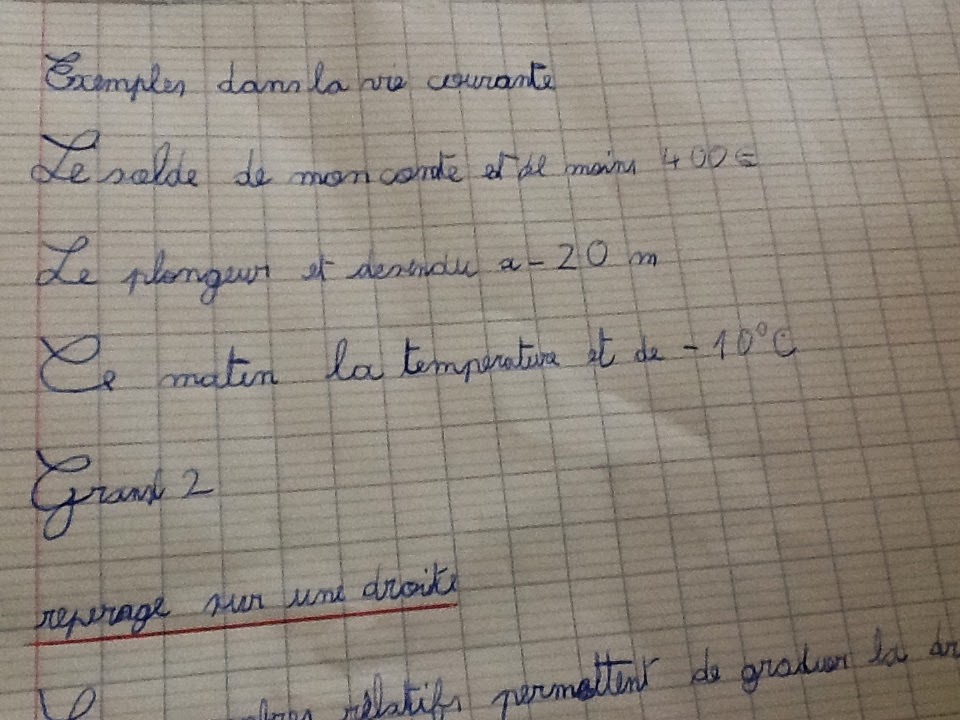 Exemples dans la vie courante
Le solde de mon conte et de moins 400 €
Le plongeur et desendu a - 20 m
Ce matin la temperature et de - 10°C
Grand 2
reperage sur une droite
relatifs permettent de graduer la